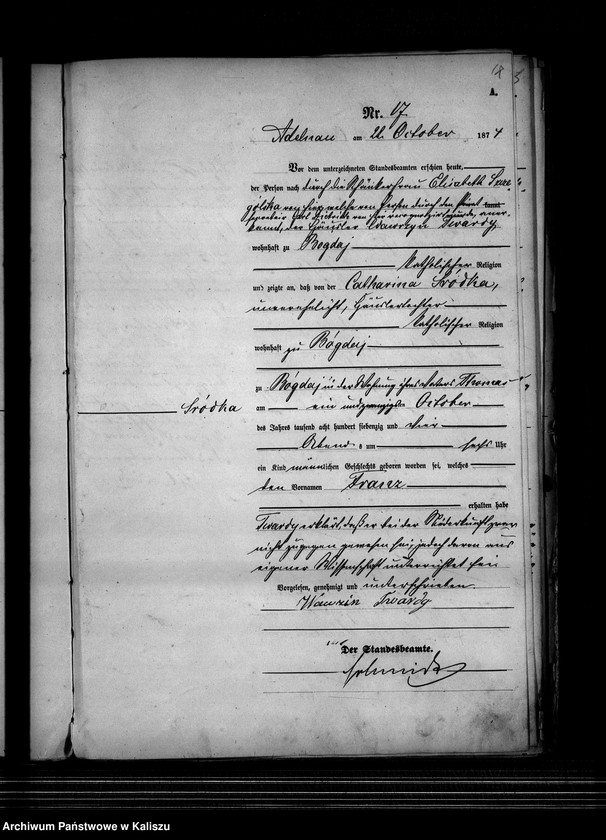 18
A.
Nr. 17
Adelnau am 22. October 1874.
Vor dem unterzeichneten Standesbeamten erschien heute,
der Person nach durch die Schänkerfrau Elisabeth
von hier, welche von Person durch den
kannt, der Häusler Wawrzyn Twardy
wohnhaft zu Bogdaj
katholischer Religion
und zeigte an, daß von der Catharina Sródka,
unverehelicht, Häuslertochter
katholischer Religion
wohnhaft zu Bógdaj
zu Bógdaj in der Wohnung ihres Vaters Thomas
Sródka
am ein und zwanzigsten October
des Jahres tausend acht hundert siebenzig und vier
Abends um sechs Uhr
ein Kind männlichen Geschlechts geboren worden sei, welches
den Vornamen Franz
erhalten habe
Twardy erklärt, daß er bei der Niederkunft zwar
nicht zugegen gewesen sei, jedoch davon aus
eigener Wissenschaft unterrichtet sei
Vorgelesen, genehmigt und unterschrieben
Twardy
Der Standesbeamte.
Schmidt
Archiwum Państwowe w Kaliszu